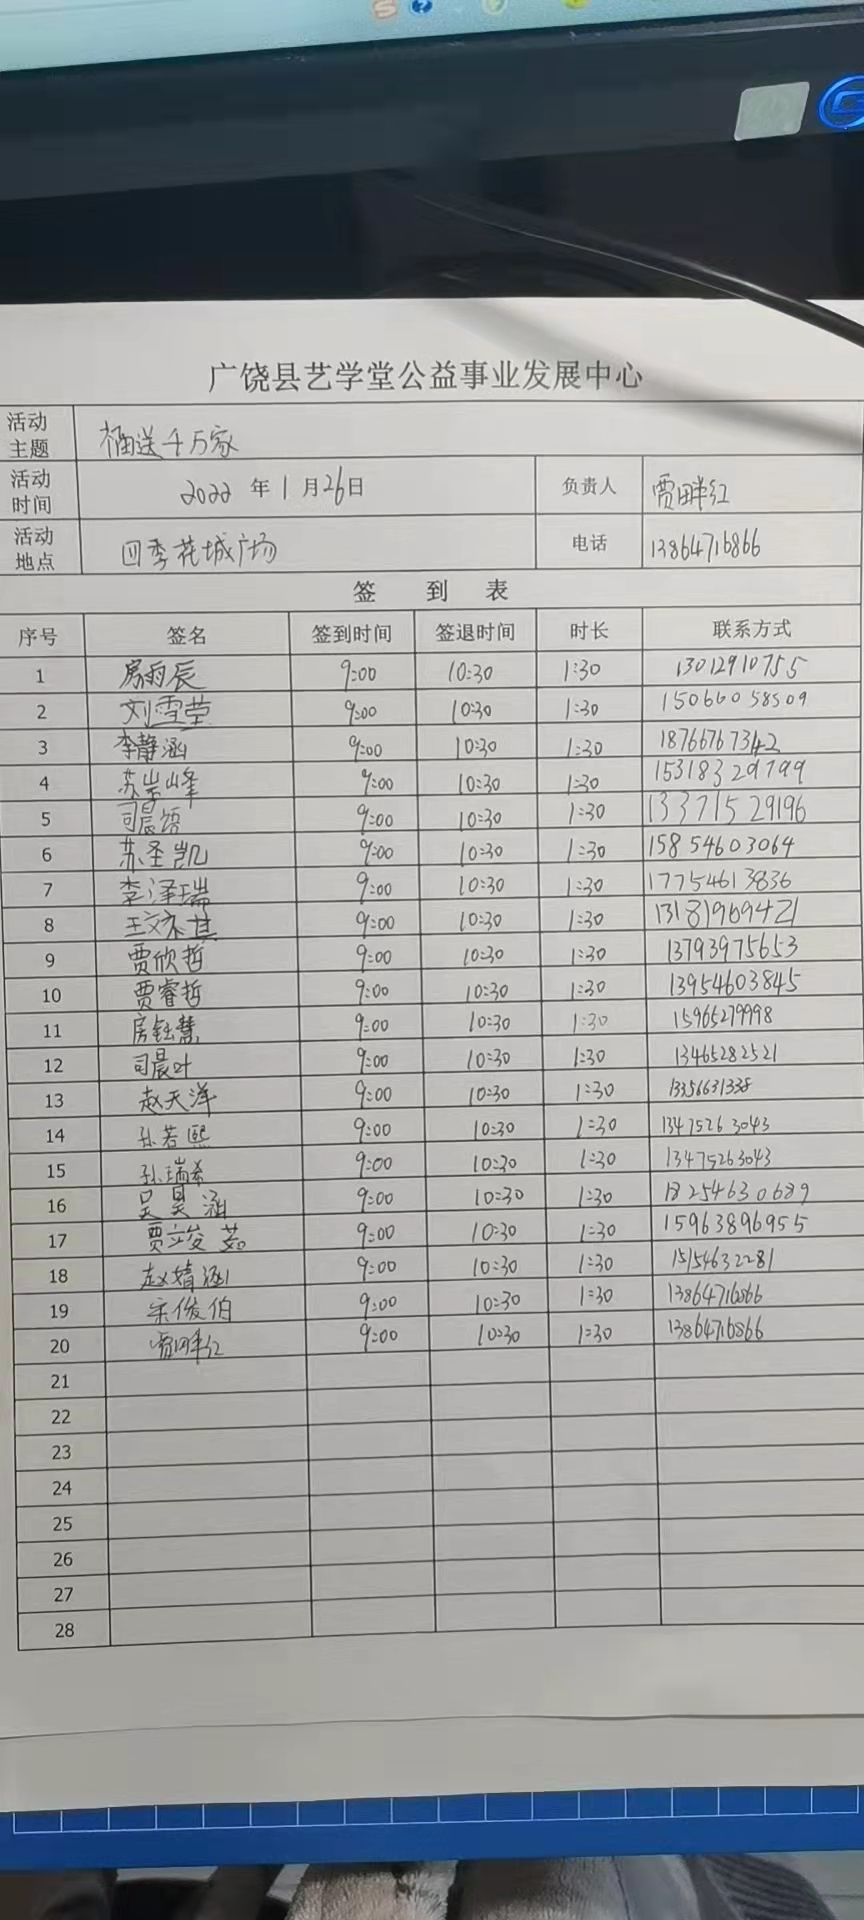 广饶县艺学堂公益事业发展中心
活动主题 福送千万家
活动时间 2022年1月26日 负责人 贾畔红
活动地点 四季花城广场 电话 13864716866
签到表
序号 签名 签到时间 签退时间 时长 联系方式
1 房雨辰 9:00 10:30 1:30 13012910755
2 刘雪莹 9:00 10:30 1:30 15066058509
3 李静涵 9:00 10:30 1:30 18766767342
4 苏崇峰 9:00 10:30 1:30 15318329799
5 司晨语 9:00 10:30 1:30 13371529196
6 苏圣凯 9:00 10:30 1:30 15854603064
7 李泽瑞 9:00 10:30 1:30 17754613836
8 9:00 10:30 1:30 13181969421
9 贾欣哲 9:00 10:30 1:30 13793975653
10 贾睿哲 9:00 10:30 1:30 13954603845
11 房钰慧 9:00 10:30 1:30 15965279998
12 司晨叶 9:00 10:30 1:30 13465282521
13 赵天洋 9:00 10:30 1:30
14 孙若熙 9:00 10:30 1:30 13475263043
15 孙瑞希 9:00 10:30 1:30 13475263043
16 吴昊涵 9:00 10:30 1:30 18254630689
17 贾竣茹 9:00 10:30 1:30 15963896955
18 赵婧涵 9:00 10:30 1:30 15154632281
19 宋俊伯 9:00 10:30 1:30 13864716866
20 贾畔红 9:00 10:30 1:30 13864716866
21
22
23
24
25
26
27
28